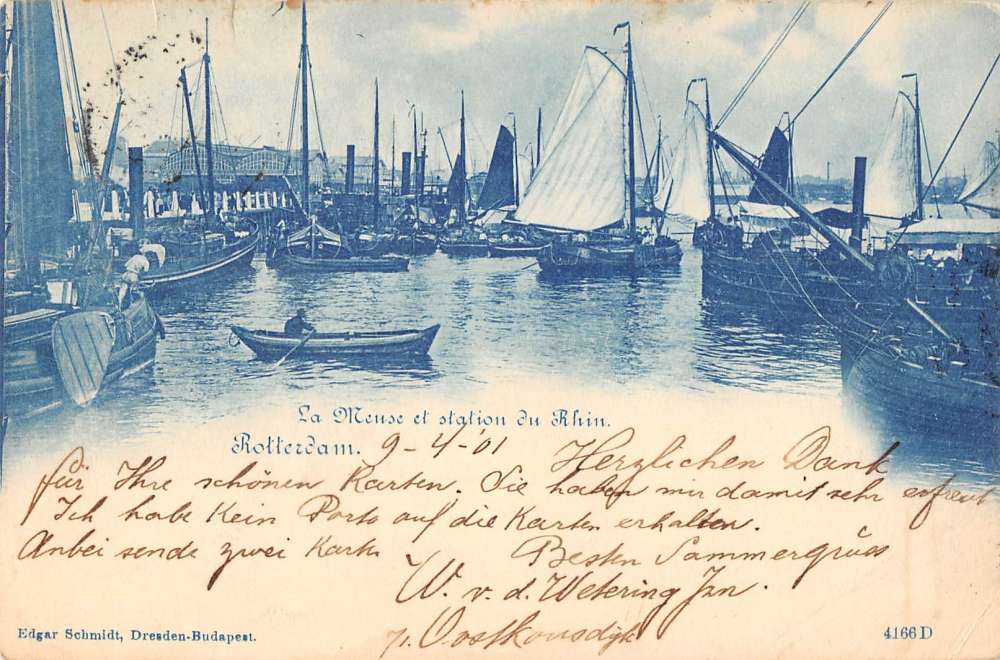 La Meuse et station du Rhin.
Rotterdam.
9-4-'01 Herzlichen Dank
für Ihre schönen Karten. Sie haben mir damit sehr erfreut
Ich habe kein Porto auf die Karten erhalten.
Anbei sende zwei Karten
Besten Sammergruss
W. v. d. Wetering Jzn.
Oostkousdijk
Edgar Schmidt, Dresden-Budapest.
4166 D